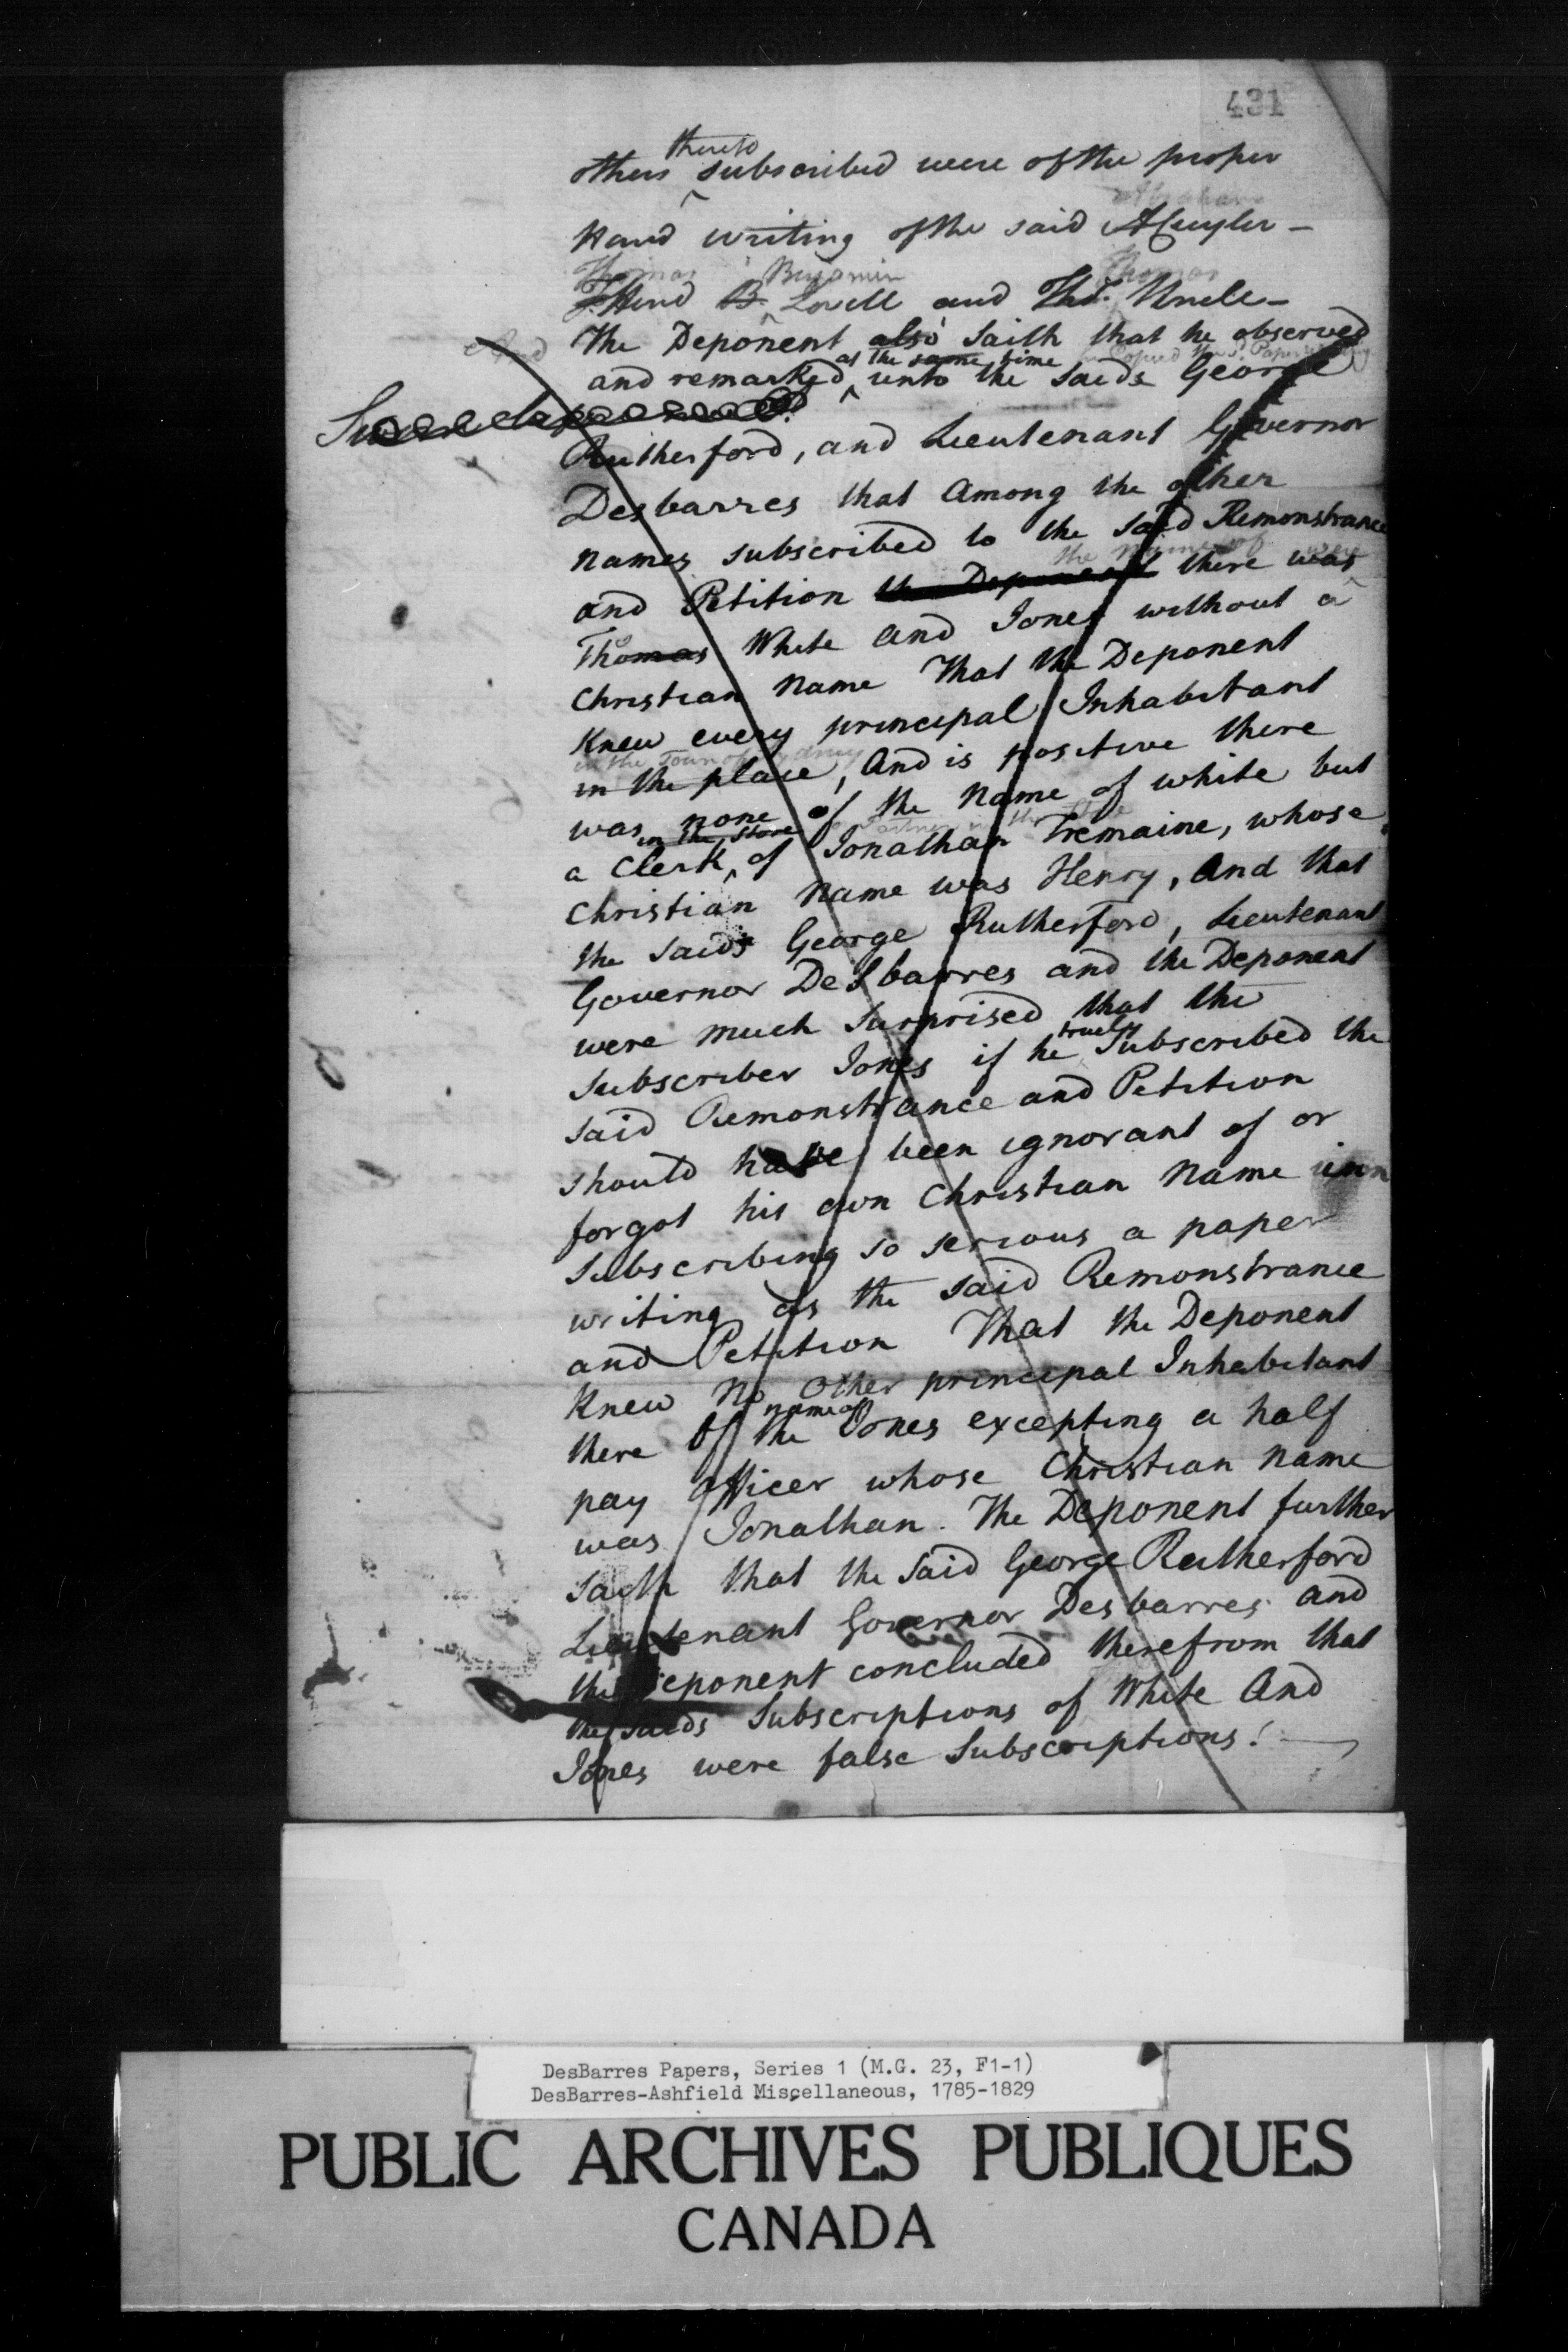 431
thereto
others subscribed were of the proper
Abraham
Hand writing of the said ACuyler -
Thomas Benjamin Thomas
T. Hind B. Lovell and Thos. Uncle -
And The Deponent also saith that he observed
at the same time Copied the sd. Paper writing
and remarked unto the saids George
Rutherford, and Lieutenant Governor
Desbarres that Among the other
names subscribed to the said Remonstrance
the name of were
and Petition the Deponent there was
Thomas White and Jones without a
Christian Name That the Deponent
Knew every principal Inhabitant
in the Town of Sydney
in the place, And is positive there
was none of the Name of white but
in the store Partner in the
a Clerk of Jonathan Tremaine, whose
Christian Name was Henry, And that
the saids George Rutherford, Lieutenant
Governor DeSbarres and the Deponent
were much Surprised that the
truely
Subscriber Jones if he Subscribed the
said Remonstrance and Petition
should have been ignorant of or
forgot his own Christian Name in
Subscribing so serious a paper
writing as the said Remonstrance
and Petition That the Deponent
Knew No Other principal Inhabitant
name of
there Of the Jones excepting a half
pay Officer whose Christian Name
was Jonathan. The Deponent further
saith that the said George Rutherford
Lieutenant Governor Desbarres and
the Deponent concluded therefrom that
the saids Subscriptions of White And
Jones were false Subscriptions! —
DesBarres Papers, Series 1 (M.G. 23, F1-1)
DesBarres-Ashfield Miscellaneous, 1785-1829
PUBLIC ARCHIVES PUBLIQUES
CANADA